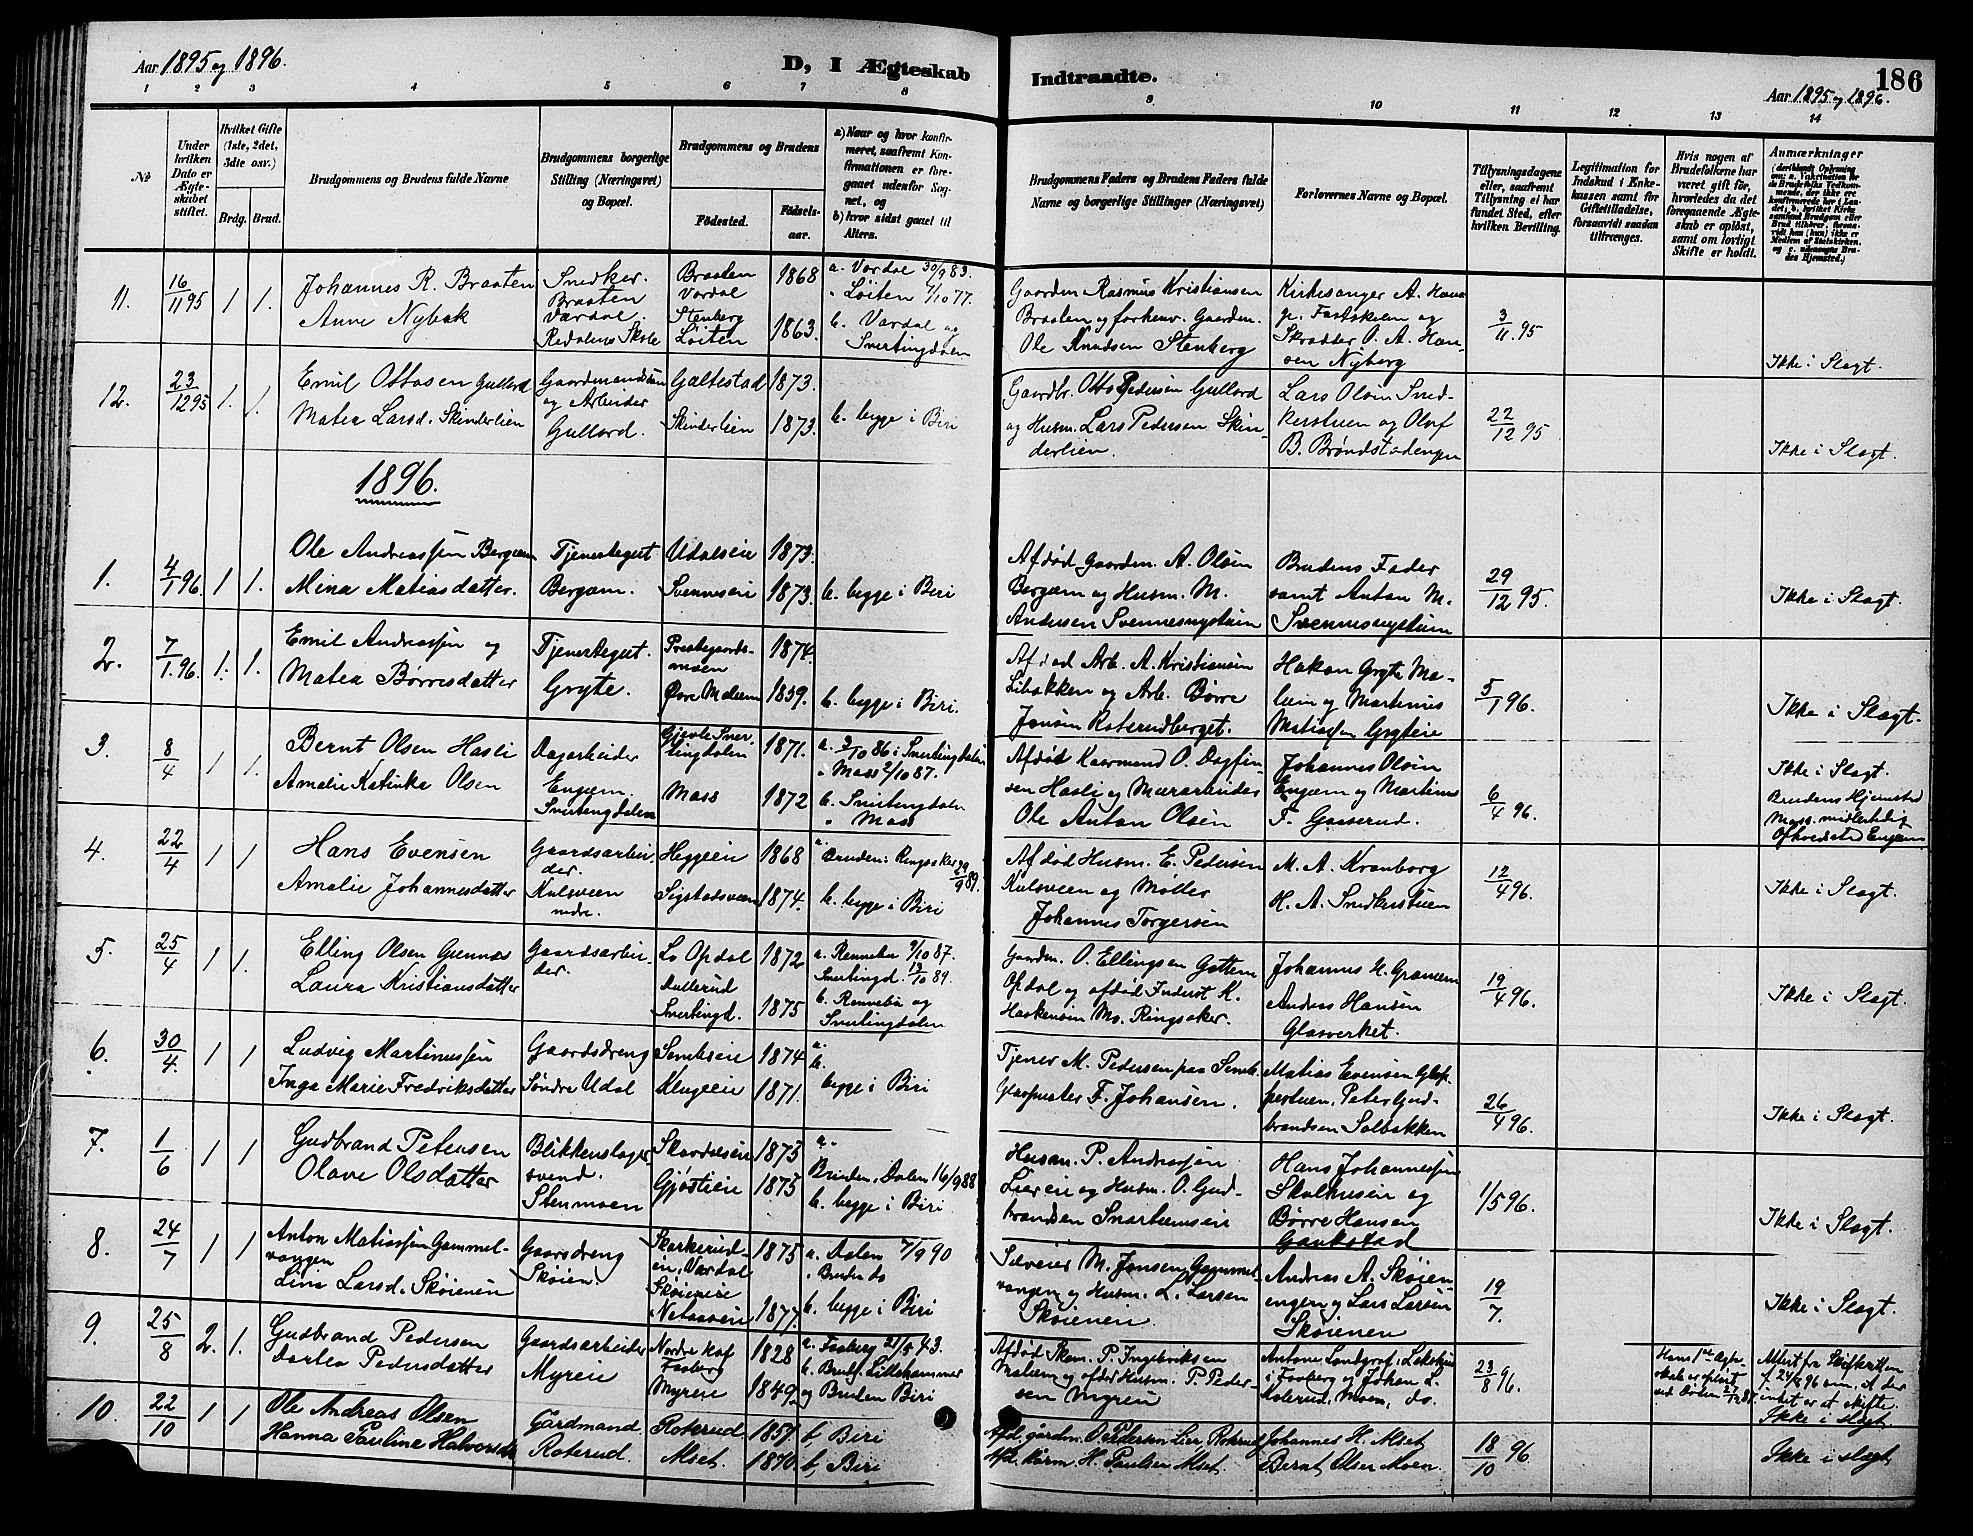 Aar 1895 og 1896.
D, I Ægteskab Indtraadte.
186
Aar 1895 og 1896.
1 2 3 4 5 6 7 8 9 10 11 12 13 14
No
Under hvilken Dato er Ægteskabet stiftet.
Hvilket Gifte (1ste, 2det, 3die osv.)
Brdg. Brud.
Brudgommens og Brudens fulde Navne
Brudgommens borgerlige Stilling (Næringsvei) og Bopæl.
Brudgommens og Brudens
Fødested. Fødselsaar.
a) Naar og hvor konfirmeret, saafremt Konfirmationen er foregaaet udenfor Sognet, og
b) hvor sidst gaaet til Alters.
Brudgommens Faders og Brudens Faders fulde Navne og borgerlige Stillinger (Næringsvei)
Forlovernes Navne og Bopæl.
Tillysningsdagene eller, saafremt Tillysning ei har fundet Sted, efter hvilken Bevilling.
Legitimation for Indskud i Enkekassen samt for Giftetilladelse, forsaavidt saadan tiltrænges.
Hvis nogen af Brudefolkene har været gift før, hvorledes da det foregaaende Ægteskab er opløst, samt om lovligt Skifte er holdt.
Anmærkninger
11. 16/11 95 1 1. Johannes R. Braaten
Anne Nybak
Snedker. Braaten Vardal. Redalens Skole
Braaten Vardal 1868
Stenberg Løiten 1863.
a. Vardal 30/9 83.
" Løiten 7/10 77.
b. Vardal og Snertingdalen
Gaardm. Rasmus Kristiansen
Braaten og forhenv. Gaardm.
Ole Knudsen Stenberg
Kirkesanger A. Skrædder O. A. Hansen Nyberg
3/11 95
Ikke i Slægt.
12. 23/12 95 1. 1. Emil Ottosen Gullord
Matea Larsd. Skinderlien
Gaardmandssøn og Arbeider Gullord.
Galtestad 1873.
Skinderlien 1873.
b. begge i Biri
Gaardbr. Otto Pedersen Gullord
og Husm. Lars Pedersen Skinderlien.
Lars Olsen Snedkerstuen og Oluf
B. Brøndstadengen
22/12 95
Ikke i Slægt.
1896.
1. 4/1 96 1 1. Ole Andreassen Bergum
Mina Matiasdatter.
Tjenestegut Bergum.
Udalseie 1873.
Svenneseie 1873.
b. begge i Biri
Afdød Gaardm. A. Olsen
Bergum og Husm. M.
Andersen Svennesnystuen
Brudens Fader
samt Anton M.
Svennesnystuen
29/12 95.
Ikke i Slægt.
2. 7/1 96 1. 1. Emil Andreassen og
Matea Børresdatter
Tjenestegut. Gryte.
Prestegaardsmoen 1874.
Øvre Mælum 1859.
b. begge i Biri.
Afdød Arb. A. Kristiansen
Libakken og Arb. Børre
Jensen Roterudberget.
Hakon Gryte Mælum og Martinus
Matiassen Gryteie
5/1 96.
Ikke i Slægt.
3. 8/4 1 1. Bernt Olsen Hasli
Amalie Katinka Olsen
Dagarbeider Engum. Snertingdalen
Gjøvle Snertingdalen 1871.
Moss 1872
a. 3/10 86 i Snertingdalen
" Moss 2/10 87.
b. Snertingdalen
" Moss
Afdød Kaarmand O. Dagfinsen Hasli og Murarbeider
Ole Anton Olsen
Johannes Olsen
Engum og Martinus
F. Gaaserud.
6/4 96.
Ikke i Slægt.
Brudens Hjemsted
Moss. midlertidig
Opholdssted Engum
4. 22/4 1 1 Hans Evensen
Amalie Johannesdatter
Gaardsarbeider. Kulsveen nedre.
Heggeie 1868
Sigstadsveen 1874.
a. Bruden: Ringsaker 29/9 89.
b. begge i Biri
Afdød Husm. E. Pedersen
Kulsveen og Møller
Johannes Torgersen
M. A. Kranborg
H. A. Snedkerstuen
12/4 96.
Ikke i Slægt.
5. 25/4 1 1. Elling Olsen Gunnæs
Laura Kristiansdatter
Gaardsarbeider.
Lo Opdal 1872
Dullerud Snertingd. 1875
a. Rennebu 9/10 87.
Snertingd. 13/10 89.
b. Rennebu og Snertingdalen
Gaardm. O. Ellingsen Gottem
Opdal og afdød Inderst K.
Haakensen Mo. Ringsaker.
Johannes H. Granum
Andreas Hansen
Glasverket.
19/4 96.
Ikke i Slægt.
6. 30/4. 1 1 Ludvig Martinussen
Inga Marie Fredriksdatter
Gaardsdreng Søndre Udal
Sembseie 1874
Klugeeie 1871.
a.
b. begge i Biri
Tjener M. Pedersen paa Semb.
Glaspuster F. Johansen.
Matias Evensen Gloppestuen. Peter Gudbrandsen Solbakken
26/4 96.
Ikke i Slægt.
7. 1/6 1 1 Gudbrand Petersen
Olave Olsdatter
Blikkenslagersvend. Stenmoen
Skardalseie 1873
Gjøstieie 1875
a.
Bruden. Dalen 16/9 88
b. begge i Biri
Husm. P. Andreassen
Liereie og Husm. O. Gudbrandsen Snartumseie
Hans Johannessen
Skalhuseie og
Børre Hansen
Gaukstad
1/5 96.
Ikke i Slægt.
8. 24/7 1 1 Anton Matiassen Gammelvangen
Lina Larsd. Skøienen
Gaardsdreng Skøien.
Skarkeruden. Vardal 1875
Skøieneie 1877.
a. Dalen 7/9 90
" Bruden do
b. begge i Biri
Selveier M. Jensen Gammelvangen og Husm. L. Larsen
Skøienen.
Andreas A. Skøienengen og Lars Larsen
Skøienen
19/7.
Ikke i Slægt.
9. 25/8 2. 1. Gudbrand Pedersen
Dortea Pedersdatter
Gaardsarbeider Myreie
Nordre Faaberg 1828
Myreie 1849
a. Faaberg 21/5 43.
b. Brudg. Lillehammer
og Bruden Biri
Afdød P. Ingebriksen
og afdød Husm. P. Pedersen Myreie
Faaberg og Johan L.
Roterud, Moen, do.
23/8 96.
Hans 1ste Ægteskab er opløst
ved Døden
Attest fra Skifteretten
f. 24/8 96 om, at der
intet er at skifte.
Ikke i slægt
10. 22/10 1 1 Ole Andreas Olsen
Hanna Pauline Halvorsd.
Gårdmand Roterud.
Roterud. 1857.
Alset. 1870.
b, Biri
b, Biri
Afd. gårdm. O. Pedersen Roterud
Afd. H. Paulsen Alset.
Johannes H. Alset
Bernt Olsen Moen.
18/10 96
Ikke i slægt